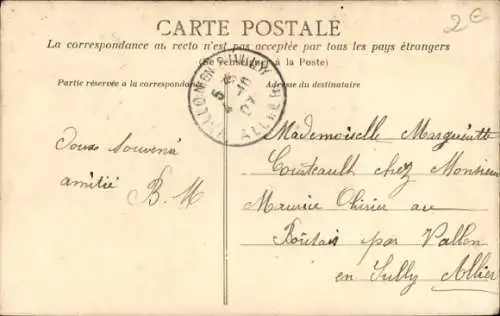 2€
CARTE POSTALE
La correspondance au recto n'est pas acceptée par tous les pays étrangers
(Se renseigner à la Poste)
Partie réservée à la correspondance
Adresse du destinataire
VALLON-EN-SULLY
5 - 10
07
ALLIER
Doux souvenir
amitié B. M
Mademoiselle Marguerite
chez Monsieur
Maurice au
par Vallon
en Sully Allier